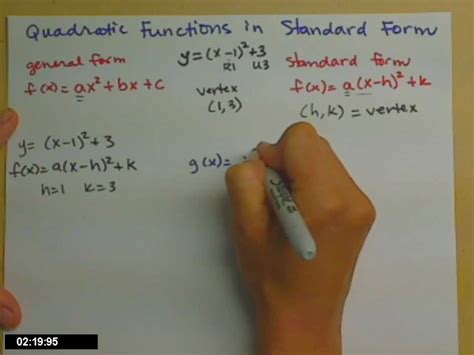 Quadratic Functions in Standard Form
general form
f(x) = ax² + bx + c
y = (x-1)² + 3
R1 U3
vertex
(1, 3)
standard form
f(x) = a(x-h)² + k
(h, k) = vertex
y = (x-1)² + 3
f(x) = a(x-h)² + k
h=1 k=3
g(x) =
02:19:95